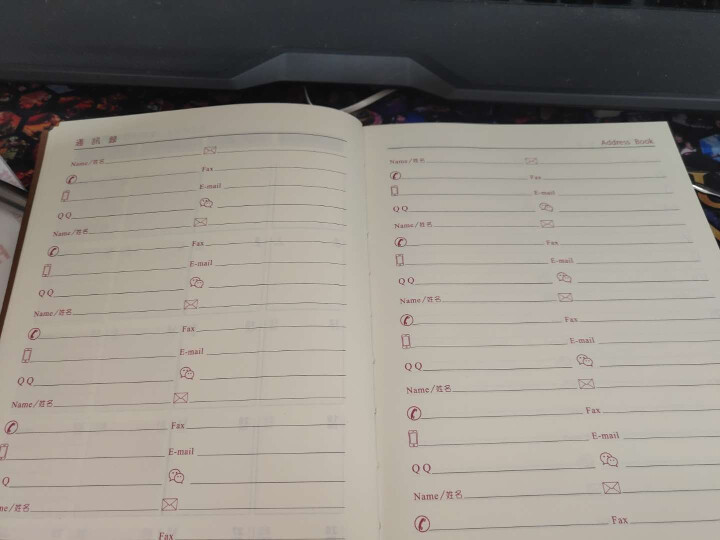 通 訊 錄
Name/姓名
Fax
E-mail
QQ
Name/姓名
Fax
E-mail
QQ
Name/姓名
Fax
E-mail
QQ
Name/姓名
Fax
E-mail
Q
me/姓名
Fax
Address Book
Name/姓名
Fax
E-mail
QQ
Name/姓名
Fax
E-mail
QQ
Name/姓名
Fax
E-mail
QQ
Name/姓名
Fax
E-mail
QQ
Name/姓名
Fax